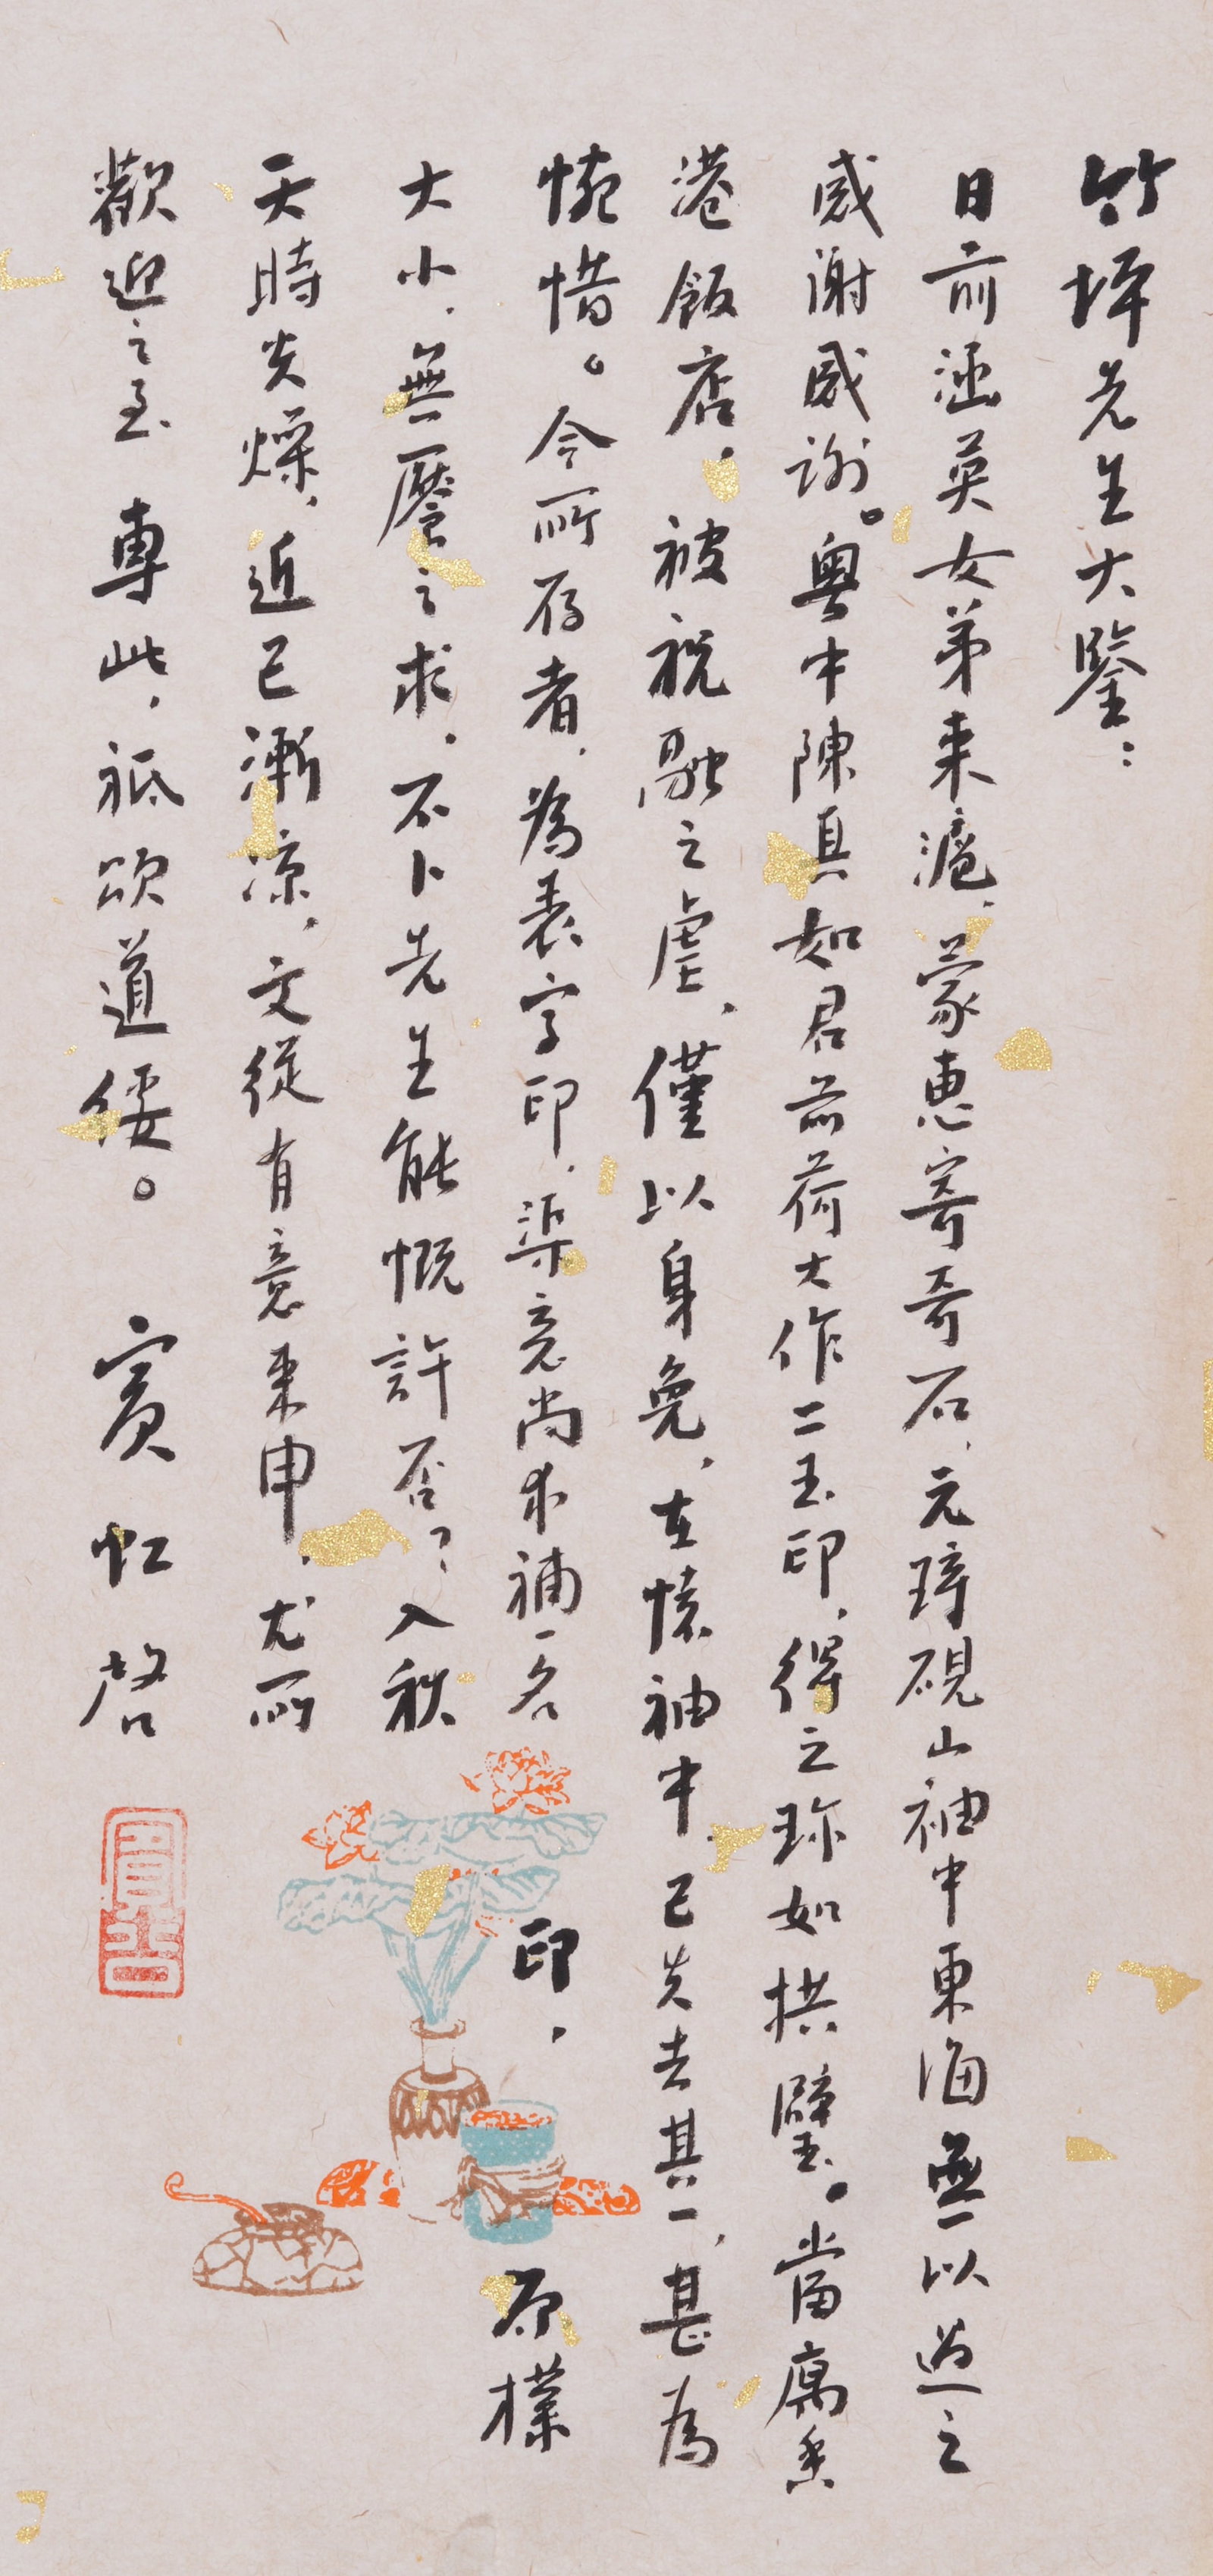 竹坪先生大鑒：
日前涵英女弟来滬，蒙惠寄奇石，元璋硯山袖中東海無以過之
感謝感謝。粤中陳真如君前荷大作二玉印，得之珍如拱璧。當寓香
港飯店，被祝融之虐，僅以身免，在懷袖中已失去其一，甚為
惋惜。今所存者，為表字印，渠意尚求補一名 印， 原樸
大小，無饜之求，不卜先生能慨許否？入秋
天時炎燥，近已漸凉，文從有意来申，尤所
歡迎之至 專此，祗頌道綏。 賓虹啓